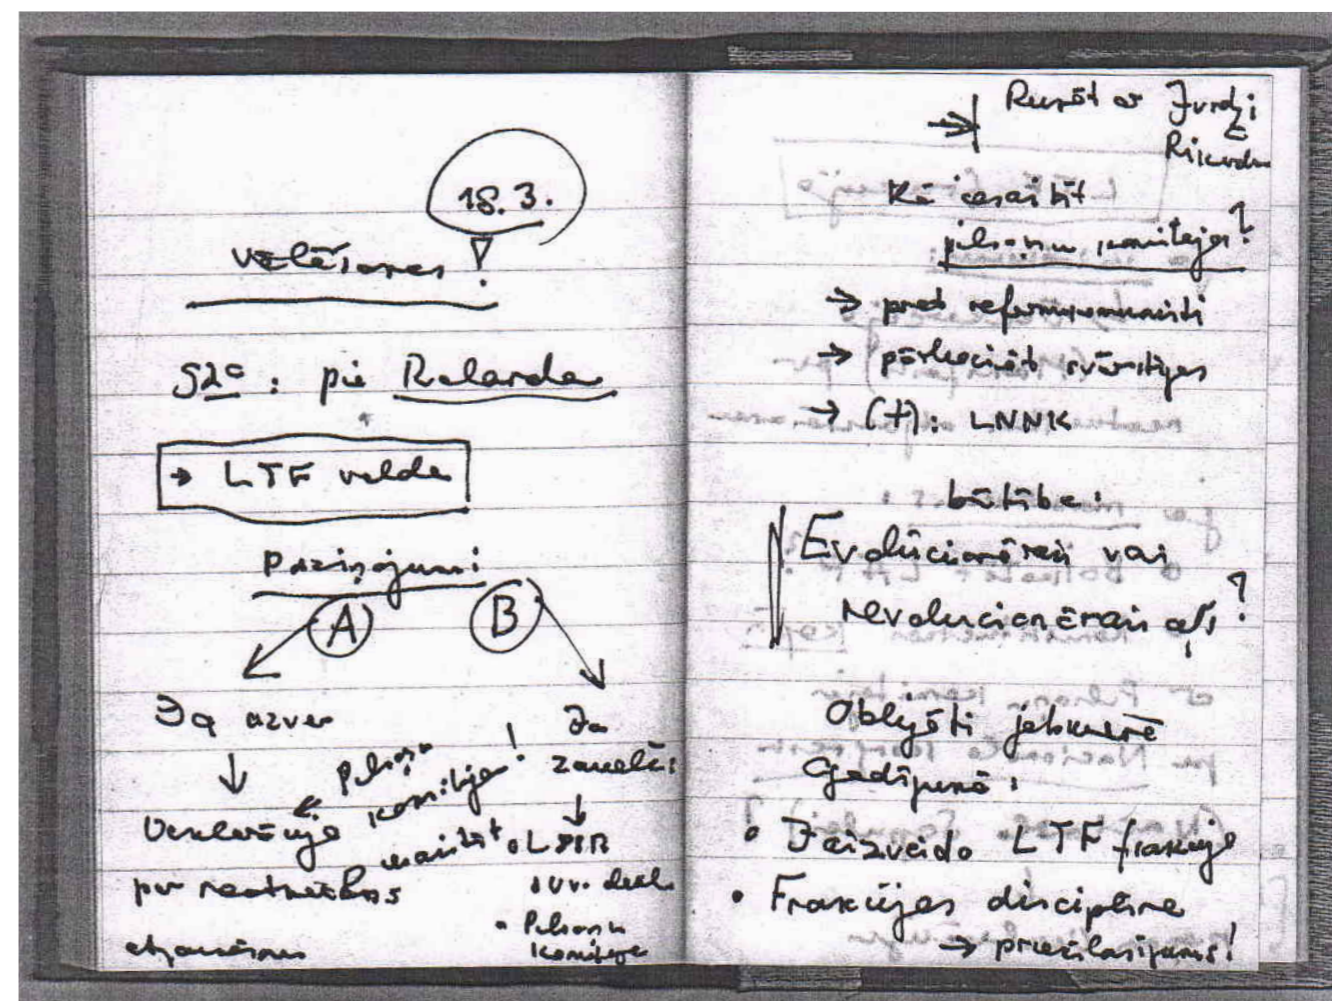 18.3.
vēlēšanas !
S2º : pie Rolanda
→ LTF valde
Paziņojumi
A B
Ja uzvar
Ja
zaudē:
Pilsoņu
komitejas !
Deklarācija
par neatkarības
atjaunošanu
• LPSR
• suv. dekl.
• Pilsoņu
komiteja
→ Runāt ar Jurdzi
Rikardu
Kā iesaistīt
pilsoņu komitejas?
→ pret reformkomunisti
→ pārliecināt svārstīgos
→ (+): LNNK
būtība:
Evolucionārais vai
revolucionārais ceļš?
Obligāti jebkurā
gadījumā:
• Jāizveido LTF frakcija
• Frakcijas disciplīna
→ priekšlasījums!